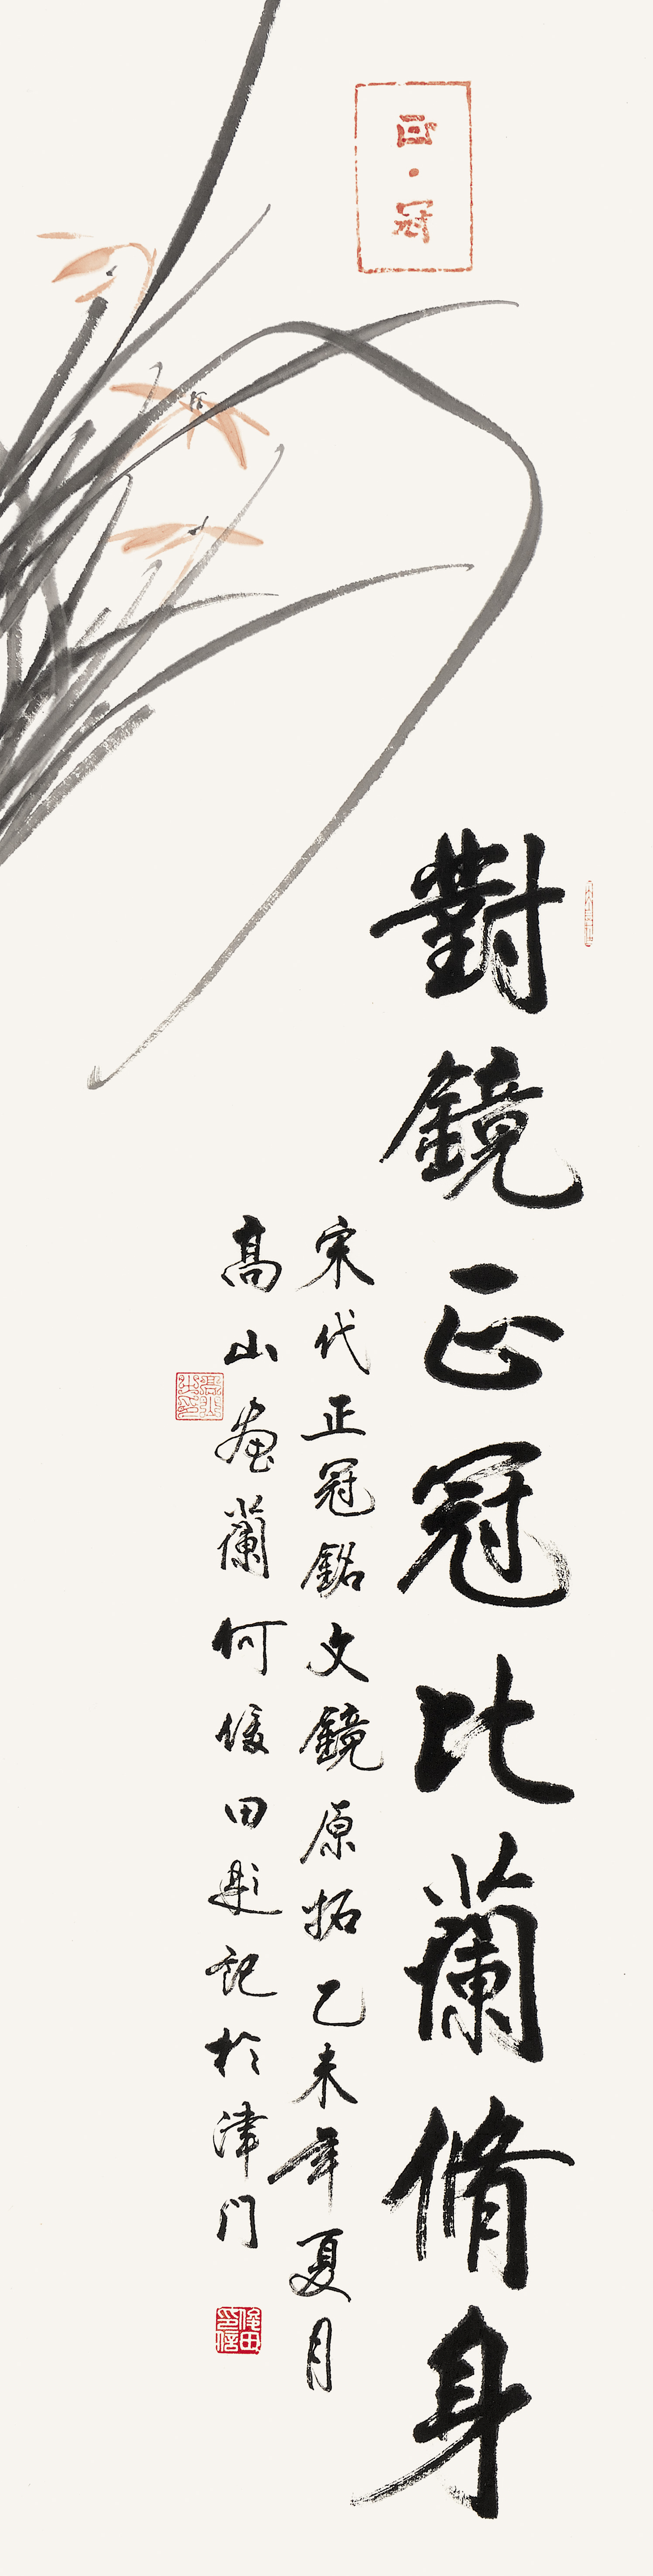 正·冠
對鏡正冠比蘭脩身
宋代正冠銘文鏡原拓乙未年夏月
高山画蘭何俊田題記於津门
俊田印信